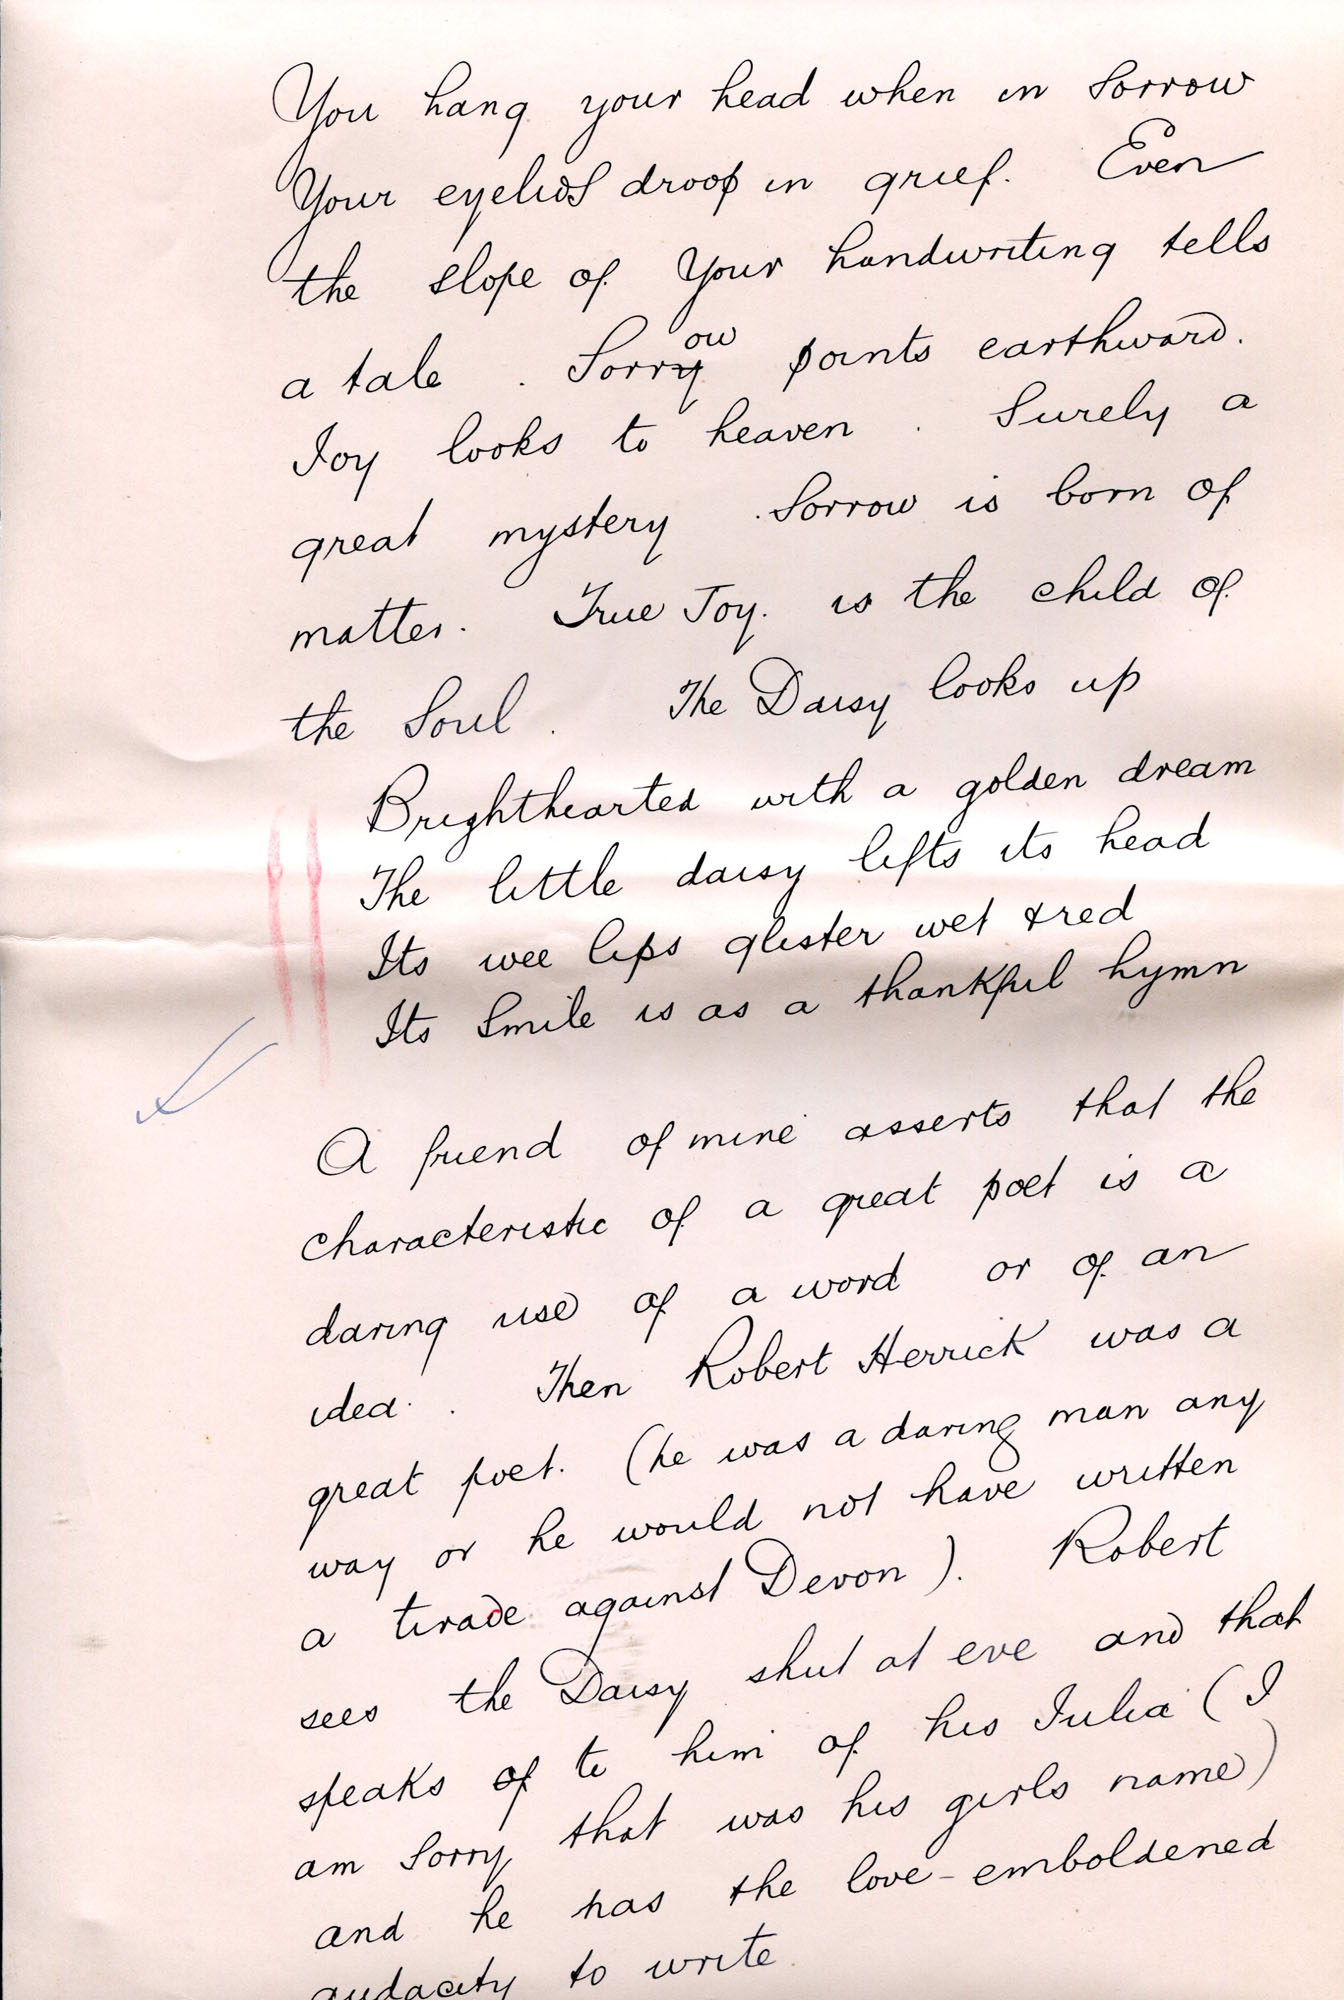 You hang your head when in Sorrow
Your eyelids droop in grief. Even
the slope of your handwriting tells
a tale . Sorry ow points earthward.
Joy looks to heaven . Surely a
great mystery . Sorrow is born of
matter. True Joy. is the child of
the Soul . The Daisy looks up
Brighthearted with a golden dream
The little daisy lifts its head
Its wee lips glister wet & red
Its Smile is as a thankful hymn
A friend of mine asserts that the
characteristic of a great poet is a
daring use of a word or of an
idea . Then Robert Herrick was a
great poet. (he was a daring man any
way or he would not have written
a tirade against Devon ). Robert
sees the Daisy shut at eve and that
speaks of to him of his Julia (I
am Sorry that was his girls name)
and he has the love-emboldened
audacity to write